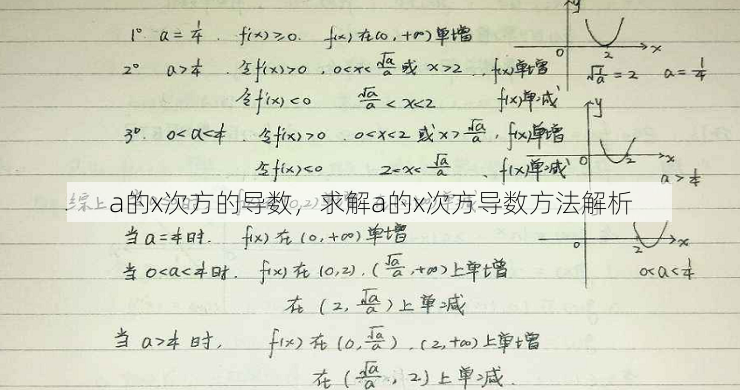 1° a=1/4 . f'(x)≥0. f(x)在(0,+∞)单增
2° a>1/4 . 令f'(x)>0 , 0<x<√a/a 或 x>2 . f(x)单增
令f'(x)<0 √a/a<x<2 f(x)单减
√a/a=2 a=1/4
3° 0<a<1/4 . 令f'(x)>0 . 0<x<2 或 x>√a/a , f(x)单增
令f'(x)<0 2<x<√a/a . f(x)单减
a>1/4
综上
a的x次方的导数，求解a的x次方导数方法解析
当a=1/4时. f(x)在(0,+∞)单增
当0<a<1/4时. f(x)在(0,2),(√a/a,+∞)上单增
0<a<1/4
在(2,√a/a)上单减
当a>1/4时, f(x)在(0,√a/a),(2,+∞)上单增
在(√a/a,2)上单减.
y
x
0
2
y
x
0
2
x
0
2